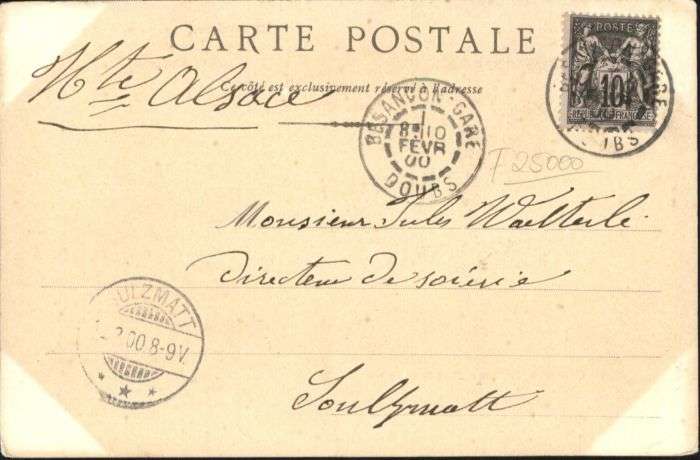 CARTE POSTALE
Ce côté est exclusivement réservé à l'adresse
Hte Alsace
POSTE
10
REPUBLIQUE FRANCAISE
GARE
BESANCON-GARE
1
8 10
FEVR
00
DOUBS
T 25000
Monsieur Jules Waelterlé
Directeur de soierie
SULZMATT
.2.00.8-9V.
Soultzmatt